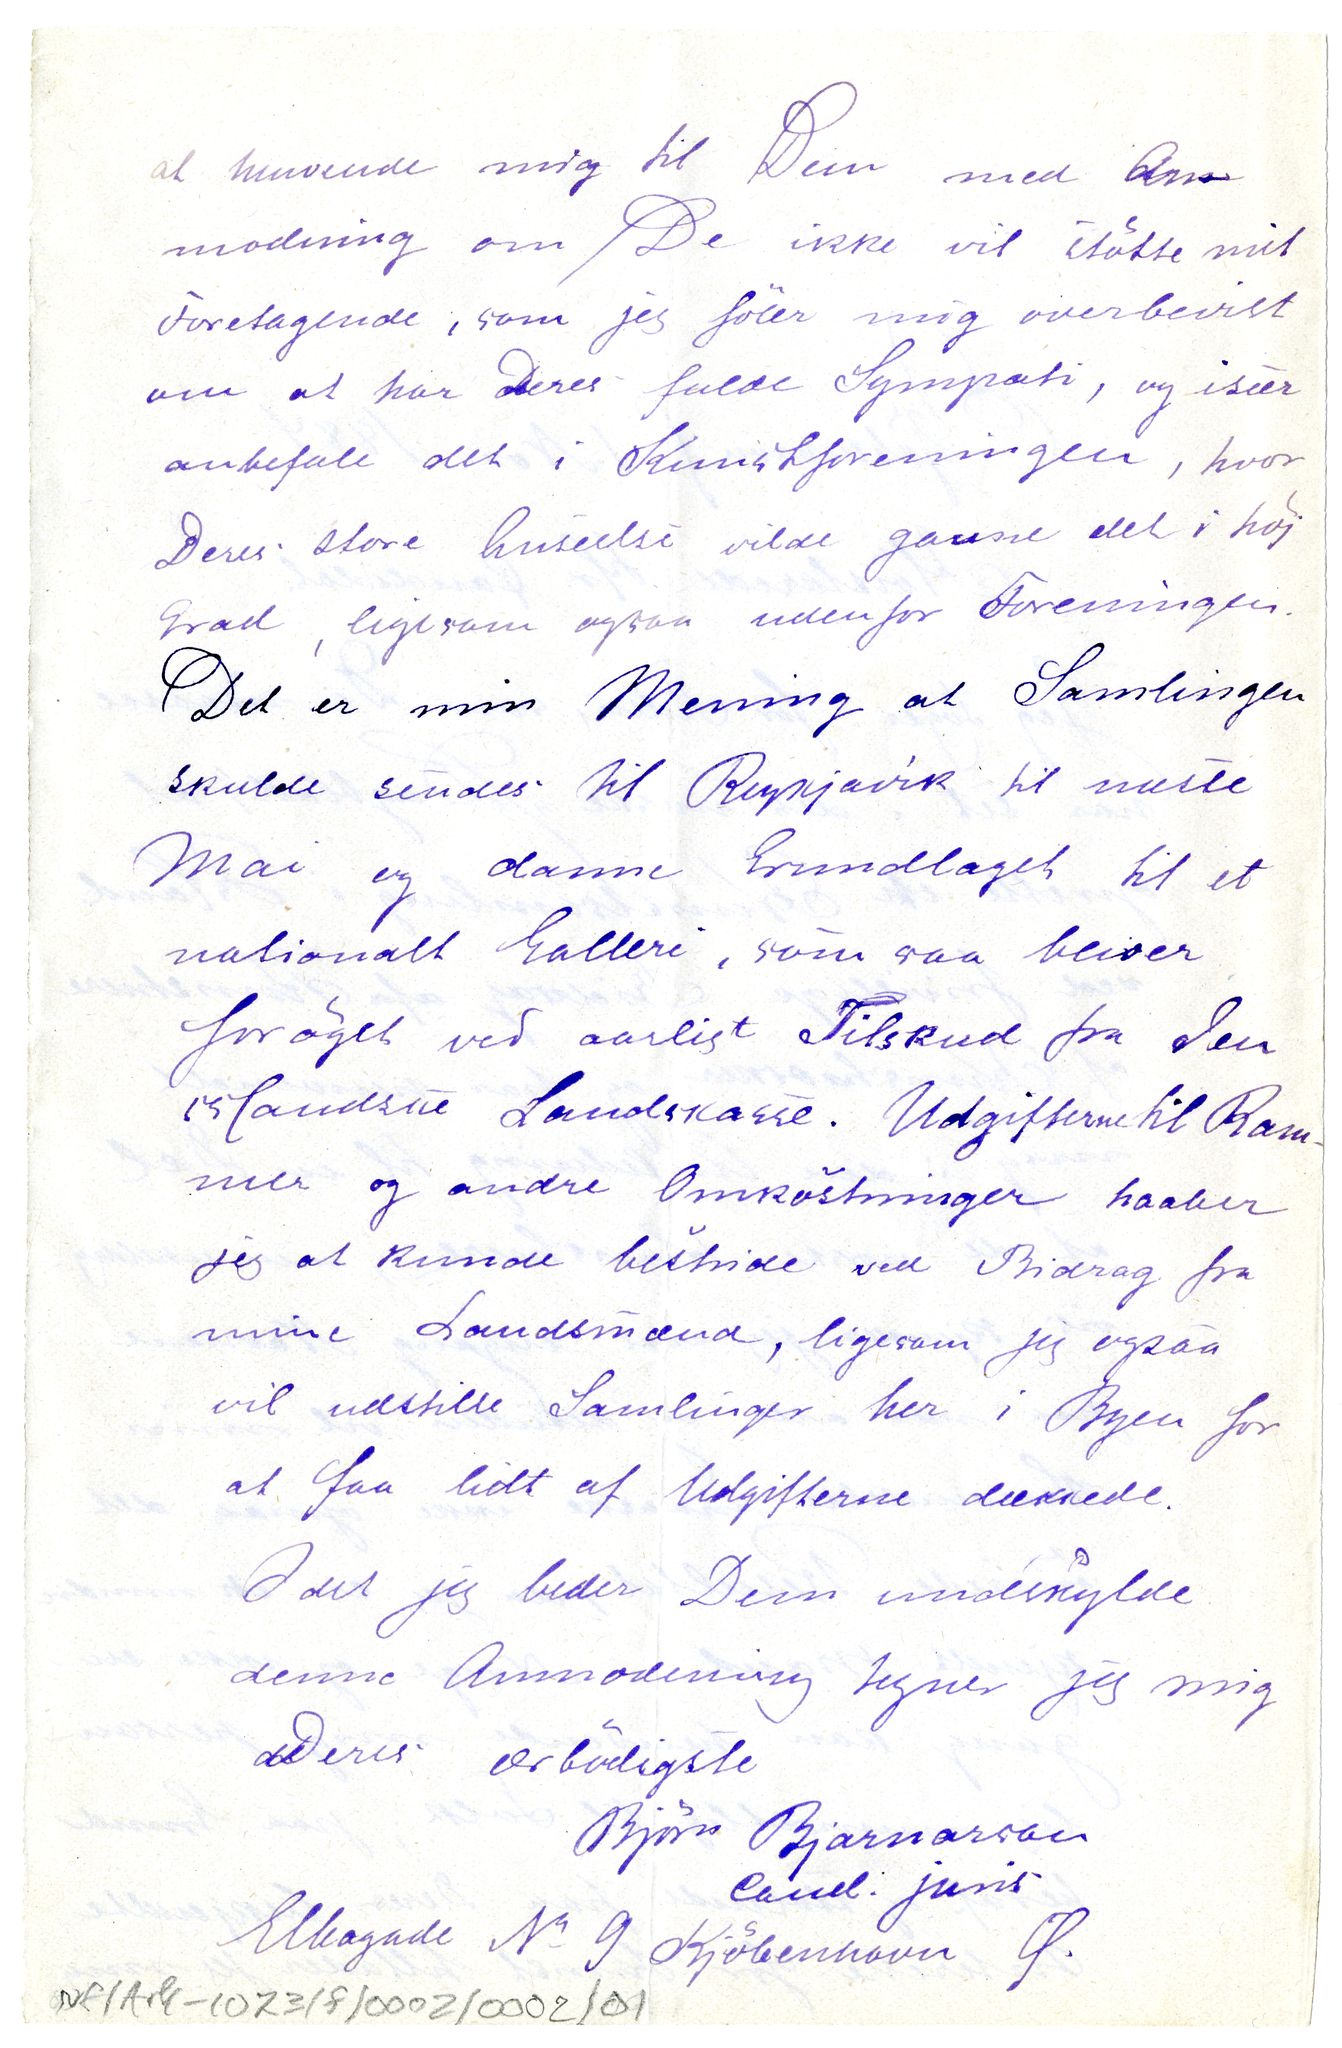 at henvende mig til Dem med An
modning om De ikke vil stötte mit
Foretagende, som jeg föler mig overbevist
om at har Deres fulde Sympati, og især
anbefale det i Kunstforeningen, hvor
Deres store Indseelse vilde gavne det i höj
Grad, ligesom ogsaa udenfor Foreningen.
Det er min Mening at Samlingen
skulde sendes til Reykjavik til næste
Mai og danne Grundlaget til et
nationalt Galleri, som saa bliver
foröget ved aarligt Tilskud fra den
islandske Landskasse. Udgifterne til Ram-
mer og andre Omköstninger haaber
jeg at kunde bestride ved Bidrag fra
mine Landsmænd, ligesom jeg ogsaa
vil udstille Samlinger her i Byen for
at faa lidt af Udgifterne dækkede.
Idet jeg beder Dem undskylde
denne Anmodening tegner jeg mig
Deres ærbödigste
Björn Bjarnarson
cand. juris
Elbagade No 9 Kjöbenhavn Ø.
NF/Ark-1073/S/0002/0002/01